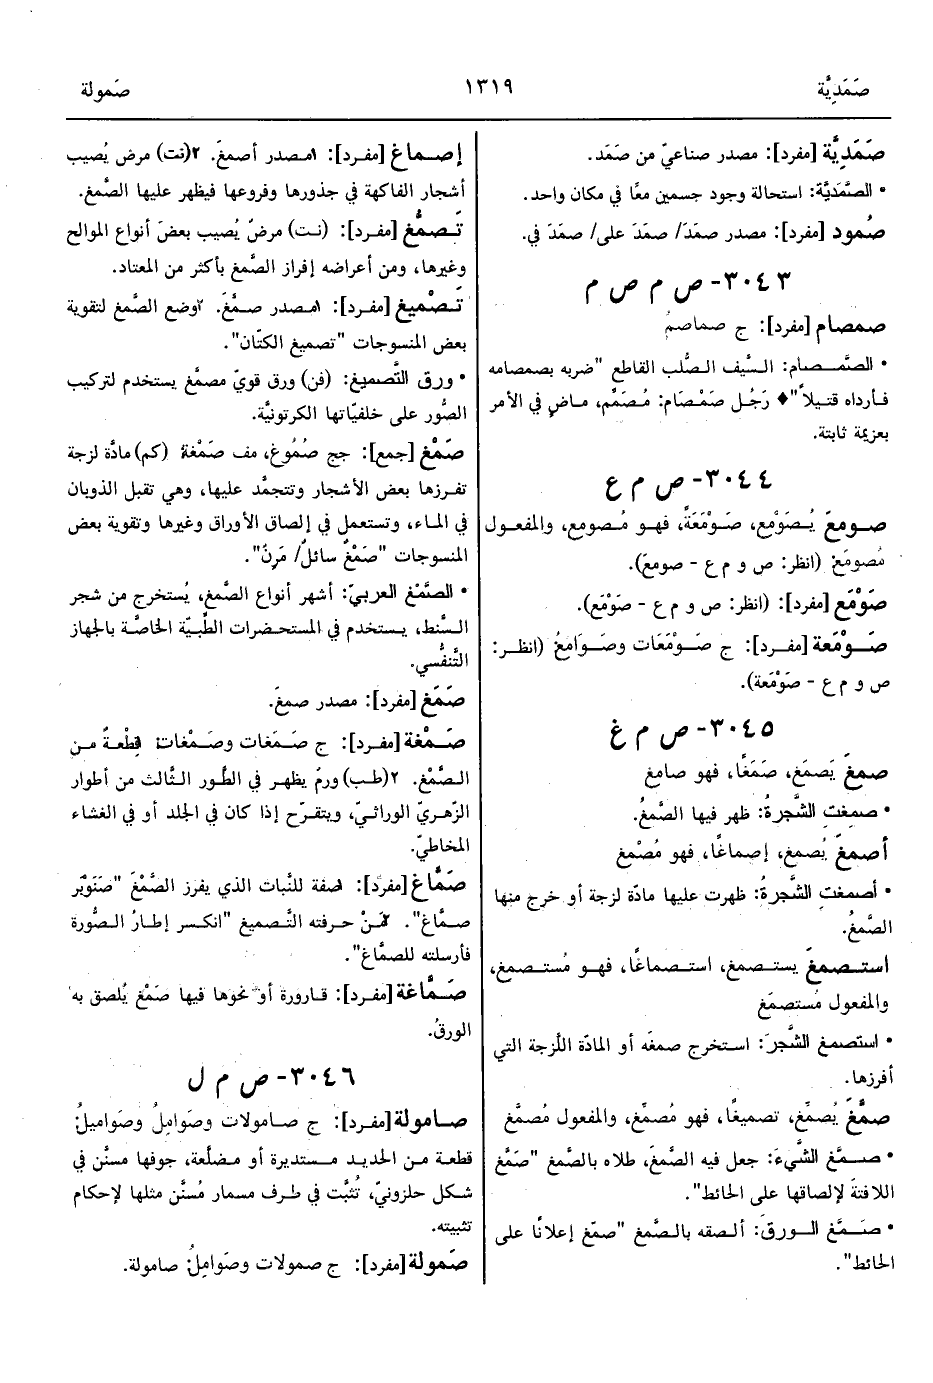 صَمَديَّة
١٣١٩
صَمولة
صَمَديَّة [مفرد]: مصدر صناعيّ من صَمَد.
• الصَّمَديَّة: استحالة وجود جسمين معًا في مكان واحد.
صُمود [مفرد]: مصدر صمَدَ/ صمَدَ على/ صمَدَ في.
٣٠٤٣- ص م ص م
صمصام [مفرد]: ج صماصمُ
• الصَّمصام: السَّيف الصُّلب القاطع "ضربه بصمصامه
فأرداه قتيلاً" ♦ رَجُل صَمْصَام: مُصَمِّم، ماضٍ في الأمر
بعزيمة ثابتة.
٣٠٤٤- ص م ع
صومعَ يُصَوْمِع، صَوْمَعَةً، فهو مُصومِع، والمفعول
مُصومَع (انظر: ص و م ع - صومعَ).
صَوْمَع [مفرد]: (انظر: ص و م ع - صَوْمَع).
صَوْمَعة [مفرد]: ج صَوْمَعَات وصَوَامِعُ (انظر:
ص و م ع - صَوْمَعة).
٣٠٤٥- ص م غ
صمغَ يَصمَغ، صَمَغًا، فهو صامِغ
• صمِغتِ الشَّجرةُ: ظهر فيها الصَّمغُ.
أصمغَ يُصمغ، إصماغًا، فهو مُصْمِغ
• أصمغتِ الشَّجرةُ: ظهرت عليها مادّة لزجة أو خرج منها
الصَّمغُ.
استصمغَ يستصمغ، استصماغًا، فهو مُستصمِغ،
والمفعول مُستصمَغ
• استصمغ الشَّجرَ: استخرج صمغَه أو المادّة اللَّزجة التي
أفرزها.
صمَّغَ يُصمِّغ، تصميغًا، فهو مُصمِّغ، والمفعول مُصمَّغ
• صمَّغ الشَّيءَ: جعل فيه الصَّمغ، طلاه بالصَّمغ "صَمَّغ
اللافتةَ لإلصاقها على الحائط".
• صَمَّغ الورقَ: ألصقه بالصَّمغ "صمّغ إعلانًا على
الحائط".
إصماغ [مفرد]: ١مصدر أصمغَ. ٢(نت) مرض يُصيب
أشجار الفاكهة في جذورها وفروعها فيظهر عليها الصَّمغ.
تَصمُّغ [مفرد]: (نت) مرضٌ يُصيب بعضَ أنواع الموالح
وغيرها، ومن أعراضه إفراز الصَّمغ بأكثر من المعتاد.
تَصْميغ [مفرد]: ١مصدر صمَّغَ. ٢وضع الصَّمغ لتقوية
بعض المنسوجات "تصميغ الكتّان".
• ورق التَّصميغ: (فن) ورق قويّ مصمَّغ يستخدم لتركيب
الصُّور على خلفيّاتها الكرتونيَّة.
صَمْغ [جمع]: جج صُمُوغ، مف صَمْغة: (كم) مادَّة لزجة
تفرزها بعض الأشجار وتتجمَّد عليها، وهي تقبل الذوبان
في الماء، وتستعمل في إلصاق الأوراق وغيرها وتقوية بعض
المنسوجات "صَمْغٌ سائلٌ/ مَرِنٌ".
• الصَّمْغ العربيّ: أشهر أنواع الصَّمغ، يُستخرج من شجر
السَّنط، يستخدم في المستحضرات الطِّبيّة الخاصَّة بالجهاز
التَّنفُّسي.
صَمَغ [مفرد]: مصدر صمغَ.
صَمْغة [مفرد]: ج صَمَغات وصَمْغات: ١قِطْعةٌ من
الصَّمْغ. ٢(طب) ورمٌ يظهر في الطَّور الثَّالث من أطوار
الزّهريّ الوراثيّ، ويتقرّح إذا كان في الجلد أو في الغشاء
المخاطيّ.
صَمَّاغ [مفرد]: ١صفة للنَّبات الذي يفرز الصَّمْغَ "صَنَوْبَر
صمَّاغ". ٢مَنْ حرفته التَّصميغ "انكسر إطارُ الصُّورة
فأرسلته للصمَّاغ".
صَمَّاغة [مفرد]: قارورة أو نحوها فيها صَمْغ يُلصق به
الورقُ.
٣٠٤٦- ص م ل
صامولة [مفرد]: ج صامولات وصَوامِلُ وصَواميلُ:
قطعة من الحديد مستديرة أو مضلَّعة، جوفها مسنَّن في
شكل حلزونيّ، تُثبَّت في طرف مسمار مُسنَّن مثلها لإحكام
تثبيته.
صَمولة [مفرد]: ج صمولات وصَوامِلُ: صامولة.